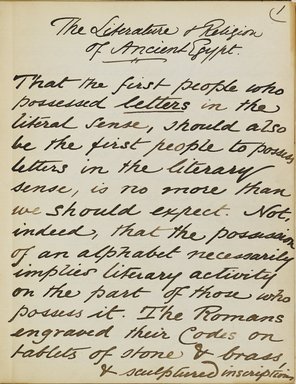 1
The Literature & Religion
of Ancient Egypt.
That the first people who
possessed letters in the
literal sense, should also
be the first people to possess
letters in the literary
sense, is no more than
we should expect. Not,
indeed, that the possession
of an alphabet necessarily
implies literary activity
on the part of those who
possess it. The Romans
engraved their Codes on
tablets of stone & brass,
& sculptured inscriptions